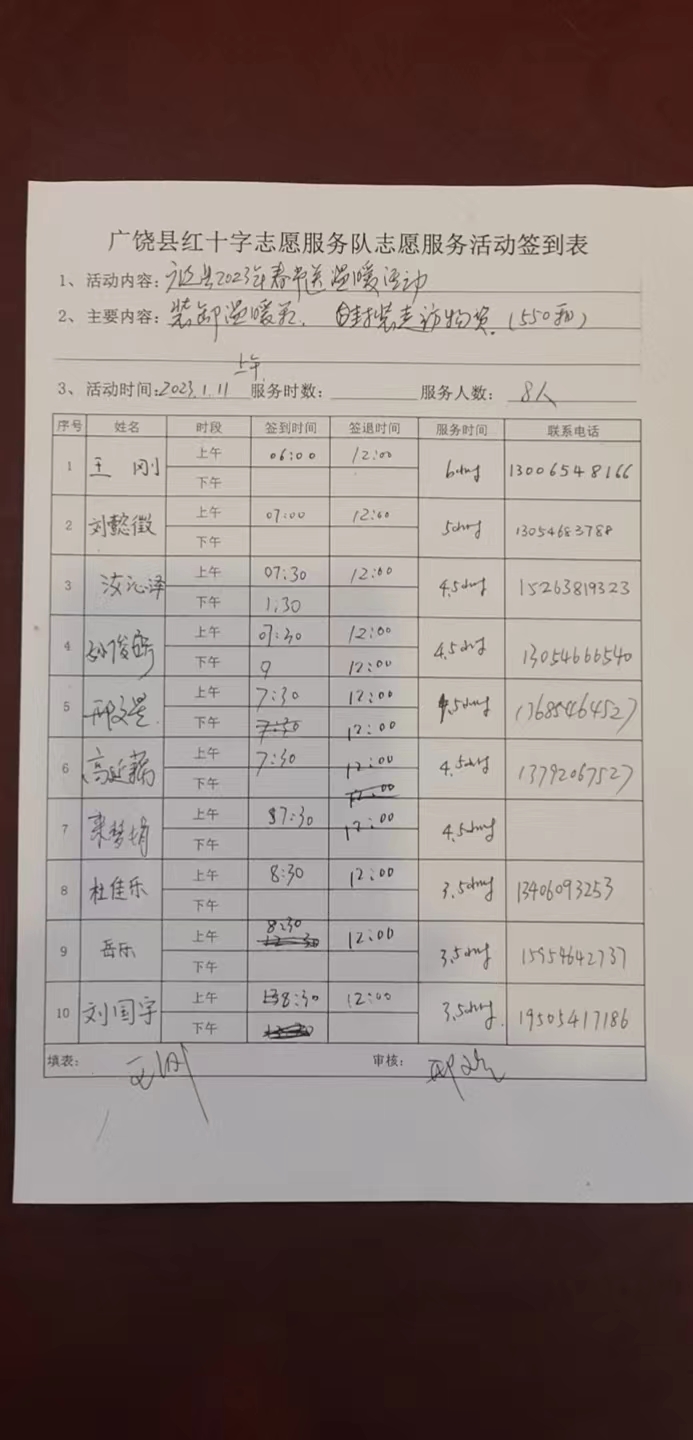 广饶县红十字志愿服务队志愿服务活动签到表
1、活动内容：广饶县2023年春节送温暖活动
2、主要内容：装卸温暖箱、封装走访物资（550箱）
上午
3、活动时间：2023.1.11 服务时数： 服务人数：8人
序号 姓名 时段 签到时间 签退时间 服务时间 联系电话
1 王刚 上午 06:00 12:00 6小时 13006548166
下午
2 刘懿徵 上午 07:00 12:00 5小时 13054683788
下午
3 沁泽 上午 07:30 12:00 4.5小时 15263819323
下午 1:30
4 孙俊 上午 07:30 12:00 4.5小时 13054666540
下午 9 12:00
5 邢文 上午 7:30 12:00 4.5小时 17685464527
下午 7:30 12:00
6 高延 上午 7:30 12:00 4.5小时 13792067527
下午 12:00
7 梦娟 上午 7:30 12:00 4.5小时
下午
8 杜佳乐 上午 8:30 12:00 3.5小时 13406093253
下午
9 岳乐 上午 8:30 12:00 3.5小时 15954642737
下午
10 刘国宇 上午 8:30 12:00 3.5小时 19505417186
下午
填表：王刚 审核：